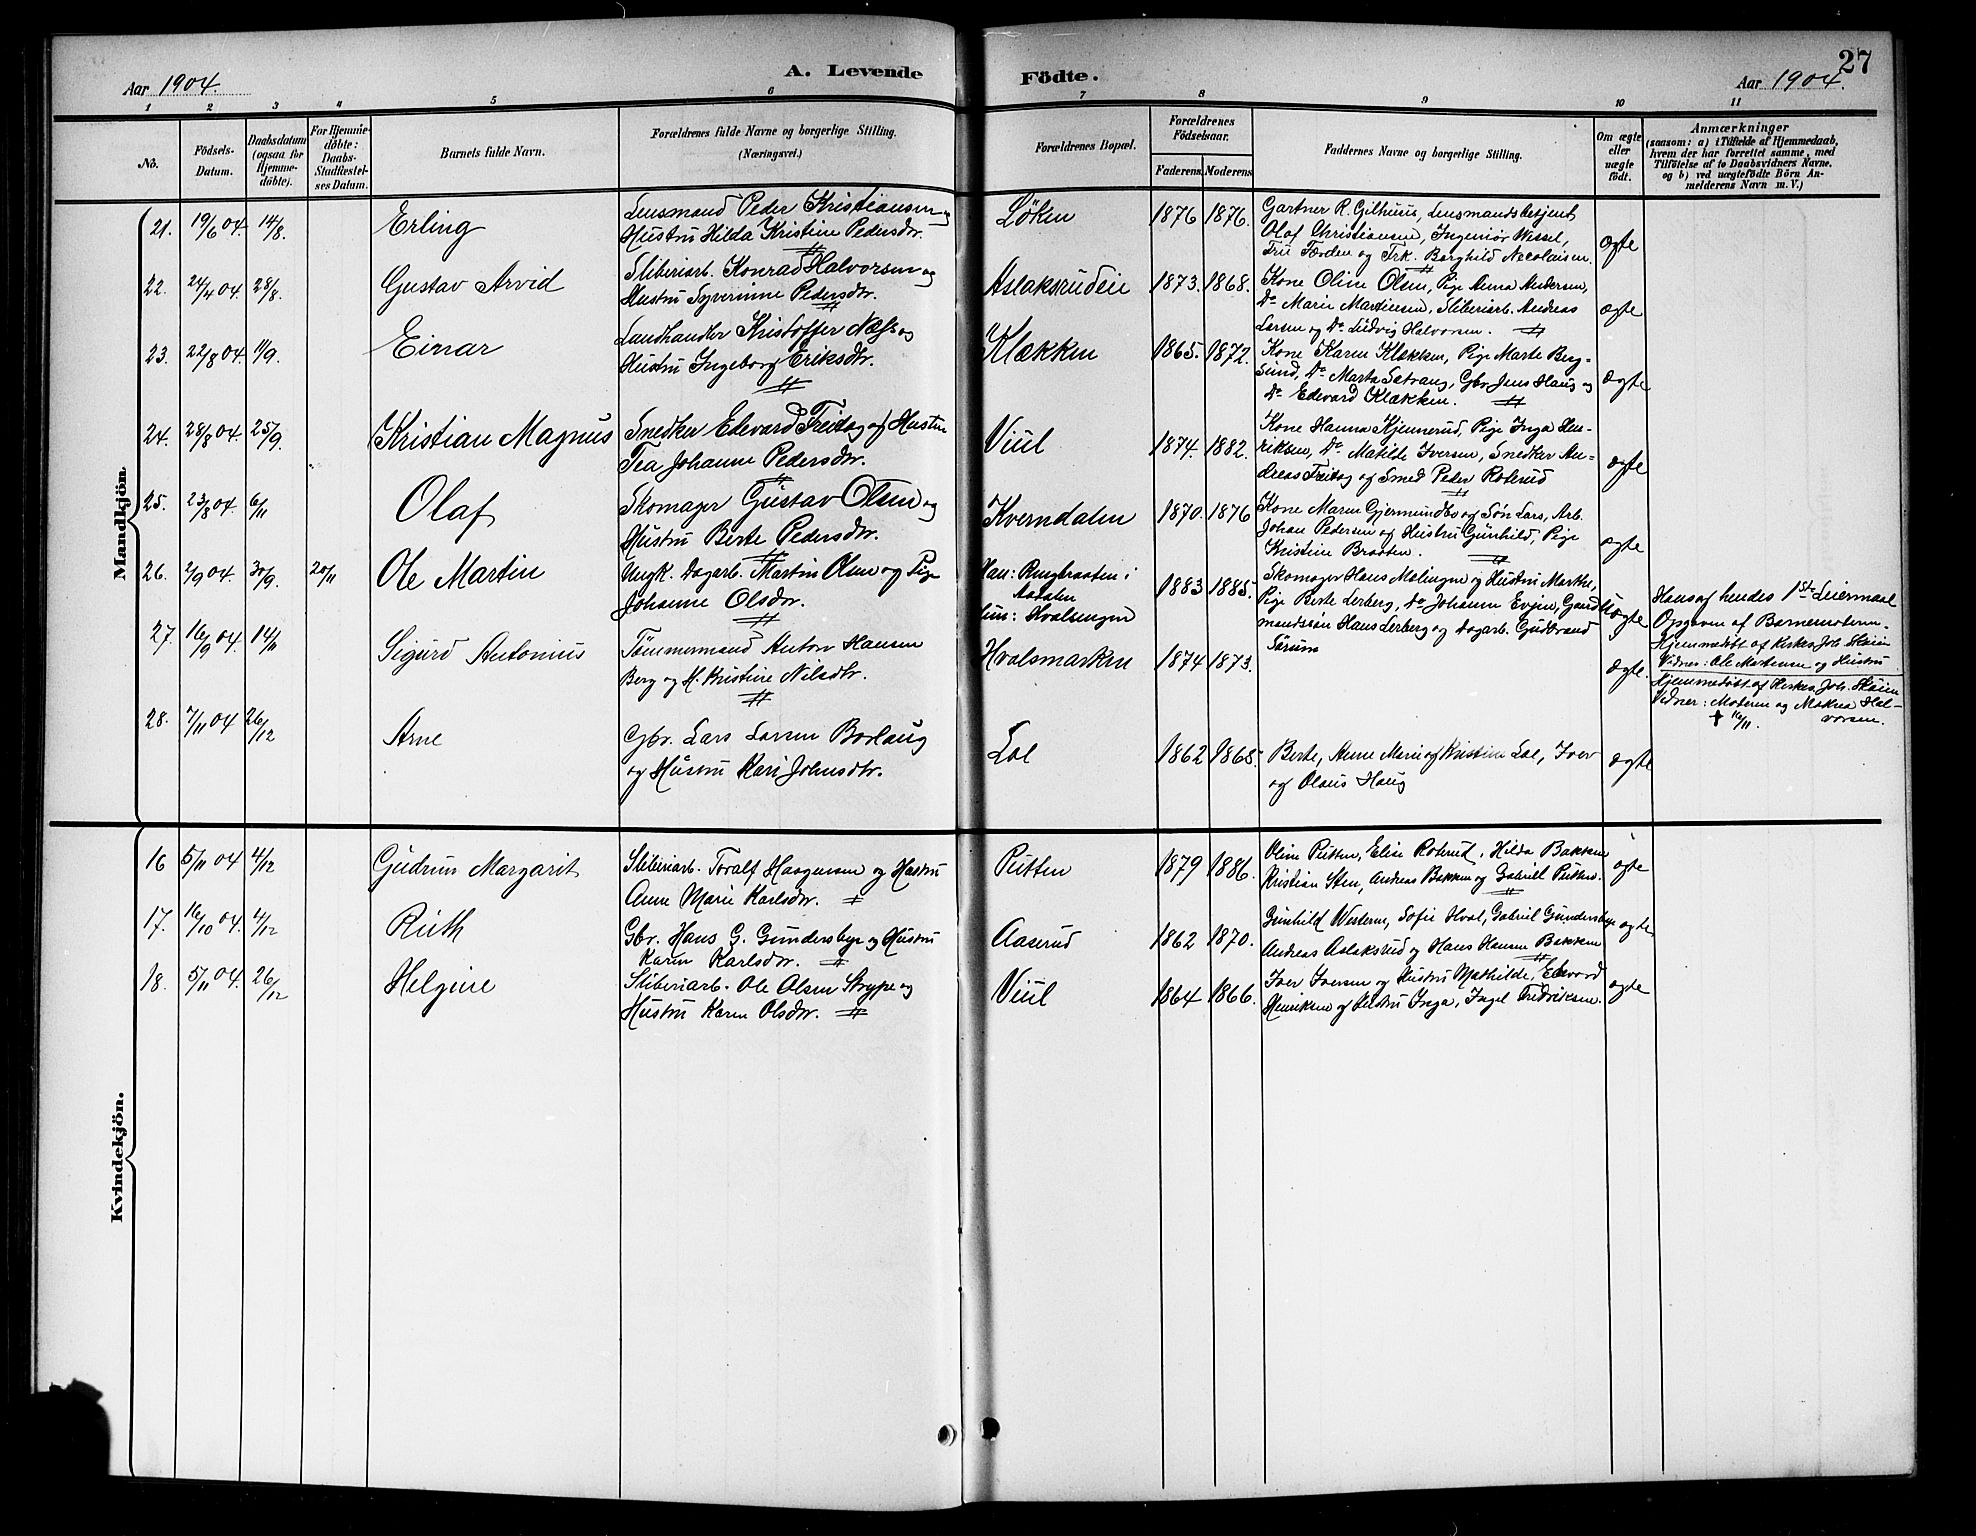 27
Aar 1904.
A. Levende
Födte.
Aar 1904.
1 2 3 4 5 6 7 8 9 10 11
No.
Födsels-
Datum.
Daabsdatum
(ogsaa for
Hjemme-
döbte).
For Hjemme-
döbte:
Daabs-
Stadfæstel-
ses Datum.
Barnets fulde Navn.
Forældrenes fulde Navne og borgerlige Stilling.
(Næringsvei.)
Forældrenes Bopæl.
Forældrenes
Födselsaar.
Faderens Moderens
Faddernes Navne og borgerlige Stilling.
Om ægte
eller
uægte
födt.
Anmærkninger
(saasom: a) i Tilfælde af Hjemmedaab,
hvem der har forrettet samme, med
Tilföielse af to Daabsvidners Navne.
og b) ved uægtefödte Börn An-
melderens Navn m. V.)
Mandkjön.
21. 19/6 04. 14/8. Erling
Lensmand Peder Kristiansen og
Hustru Hilda Kristine Pedersdtr.
Löken 1876 1876.
Gartner R. Gilhuus, Lensmandsbetjent
Olaf Christiansen, Ingeniör Wessel,
Fru Færden og Frk. Borghild Nicolaisen.
ægte
22. 24/4 04. 28/8. Gustav Arvid
Sliberiarb. Konrad Halvorsen og
Hustru Syverine Pedersdtr.
Aslaksrudeie 1873. 1868.
Kone Oline Olsen, Pige Anna Andersen,
Do Marie Martinsen, Sliberiarb. Andreas
Larsen og Do Ludvig Halvorsen.
ægte
23. 22/8 04. 11/9. Einar
Landhandler Kristoffer Næss og
Hustru Ingeborg Eriksdtr.
Klækken 1865. 1872.
Kone Karen Klækken, Pige Marte Berg-
sund, Do Marta Sætrang, Gbr. Jens Haug og
Do Edevard Klækken.
ægte
24. 28/8 04. 25/9. Kristian Magnus
Snedker Edevard Freitag og Hustru
Tea Johanne Pedersdtr.
Viul 1874. 1882.
Kone Hanna Kjennerud, Pige Inga Hen-
riksen, Do Matilde Iversen, Snedker An-
dreas Freitag og Smed Peder Roterud
ægte
25. 23/8 04. 6/11 Olaf
Skomager Gustav Olsen og
Hustru Berte Pedersdtr.
Kverndalen 1870. 1876
Kone Maren Gjermundbo og Sön Lars, Arb.
Johan Pedersen og Hustru Gunhild, Pige
Kristine Braaten.
ægte
26. 2/9 04. 30/9. 20/11 Ole Martin
Ungk. Dagarb. Martin Olsen og Pige
Johanne Olsdtr.
Han: Ringbraaten i
Aadalen
Hun: Hvalsengen
1883 1885.
Skomager Hans Malingen og Hustru Marthe,
Pige Berte Lerberg, Do Johanne Evjen, Gaard
mandssön Hans Lerberg og Dagarb. Gudbrand
Tørum
Uægte
Hans af hendes 1ste Leiermaal
Opgiven af Barnemoderen.
Hjemmedöbt af Kirkes. Joh. Sköien
Vidner: Ole Mortensen og Hustru
27. 16/9 04. 14/11 Sigurd Antonius
Tömmermand Anton Hansen
Berg og H. Kristine Nilsdtr.
Hvalsmarken 1874 1873.
ægte.
Hjemmedöbt af Kirkes. Joh. Sköien
Vidner: Moderen og Makrea Hal-
vorsen.
+ 16/11.
28. 7/11 04 26/12 Arne
Gbr. Lars Larsen Borlaug
og Hustru Kari Johnsdtr.
Loe 1862 1865.
Berte, Anne Marie og Kristine Loe, Iver
og Olaus Haug
ægte
Kvindekjön.
16 5/11 04 4/12 Gudrun Margarit
Sliberiarb. Toralf Haagensen og Hustru
Anne Marie Karlsdtr.
Putten 1879 1886.
Oline Putten, Elise Roterud, Hilda Bakken
Kristian Sten, Andreas Bakken og Gabriel Putten.
ægte
17. 16/10 04. 4/12 Ruth
Gbr. Hans G. Gundersbye og Hustru
Karen Karlsdtr.
Aaserud 1862 1870.
Gunhild Western, Sofie Hval, Gabriel Gundersbye
Andreas Aslaksrud og Hans Hansen Bakken
ægte
18. 5/11 04. 26/12 Helgine
Sliberiarb. Ole Olsen Strype og
Hustru Karen Olsdtr.
Viul 1864 1866.
Iver Iversen og Hustru Mathilde, Edevard
Henriksen og Hustru Inga, Ingel Fredriksen.
ægte